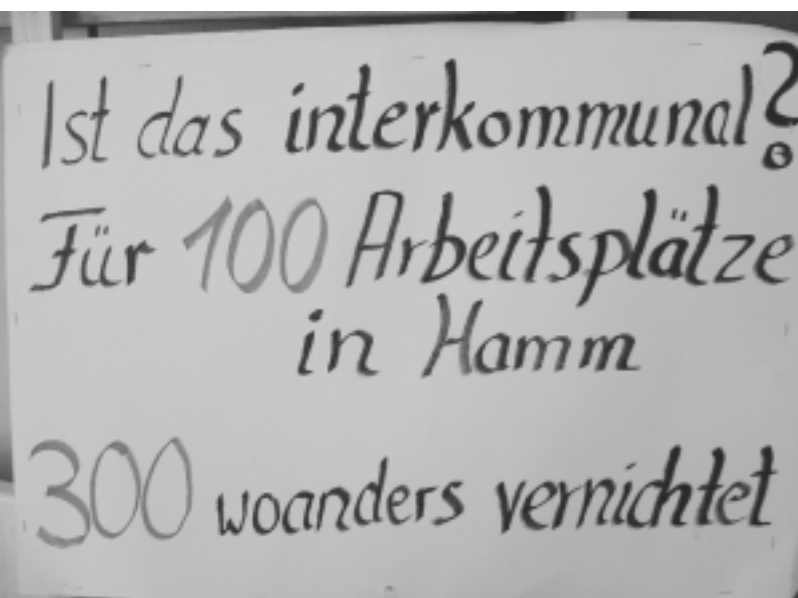 Ist das interkommunal?
Für 100 Arbeitsplätze
in Hamm
300 woanders vernichtet